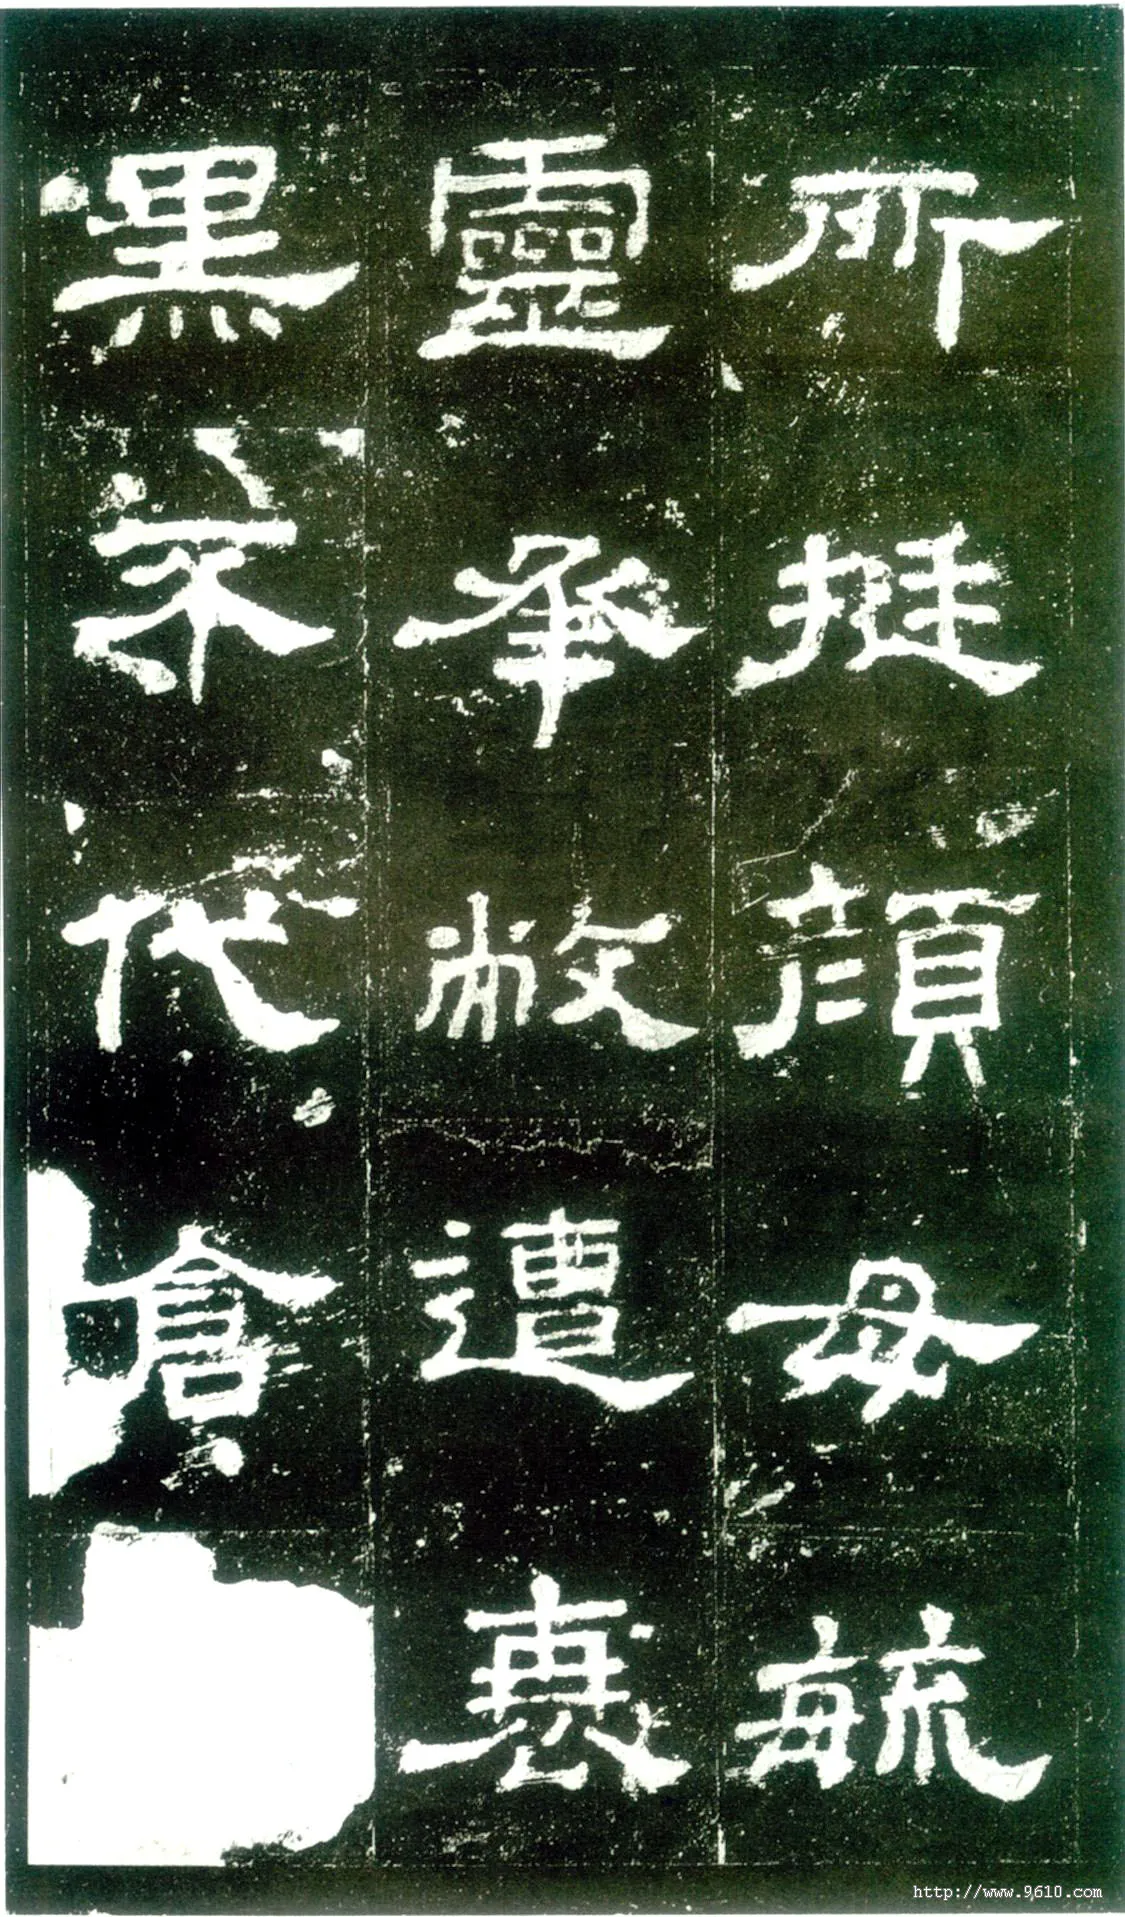 所挺顏母毓
靈承敝遭衰
黑不代倉
http://www.9610.com